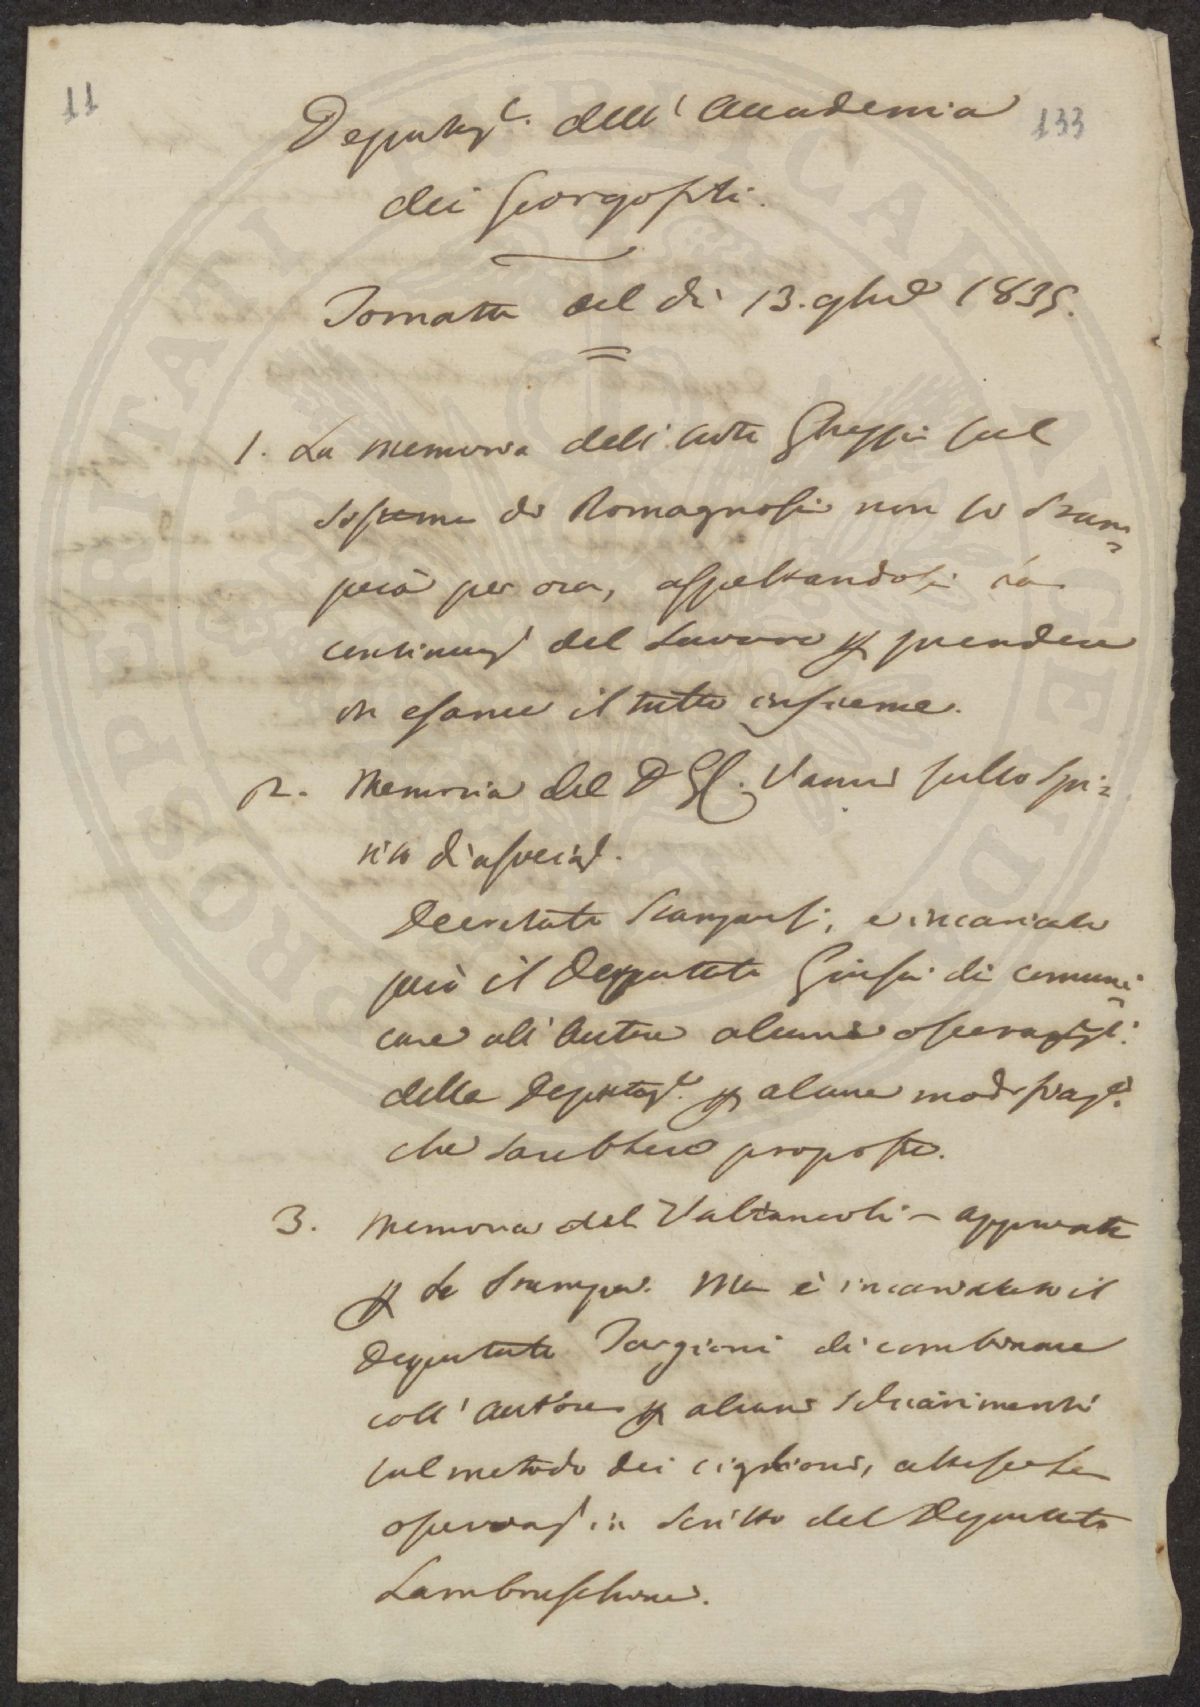 11
133
Deputaz.e dell'Accademia
dei Georgofili.
Tornata del dì 13. 9bre 1835.
1. La memoria dell'Avv.to sul
sistema di Romagnosi non si stam=
perà per ora, aspettandosi la
continuaz. del lavoro p prendere
in esame il tutto insieme.
2. Memoria del D G. Vanni sullo Spi=
rito d'associaz.
Decretato stamparsi, e incaricato
però il Deputato Giusti di comuni=
care all'Autore alcune osservaz.ni
della Deputaz.e p alcune modificaz.i
che sarebbero proposte.
3. Memoria del Valtancoli - approvata
p la stampa. Ma è incaricato il
Deputato Targioni di combinare
coll'autore p alcuni schiarimenti
sul metodo dei ciglioni, attese le
osservaz. in scritto del Deputato
Lambruschini.
PROSPERITATI PUBLICAE AUGENDAE